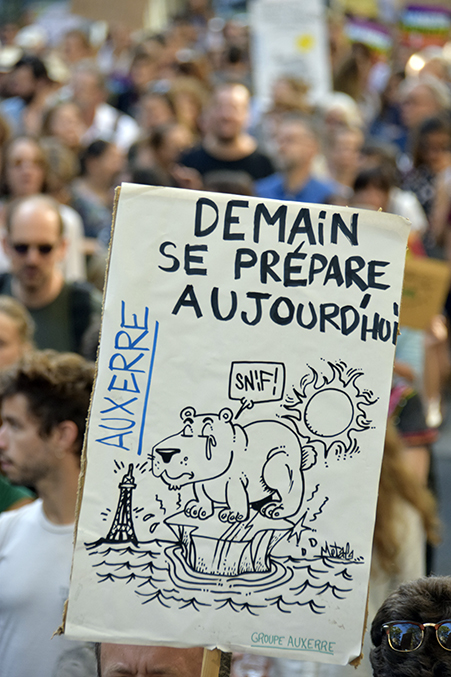 DEMAiN
SE PRÉPARE
AUJOURD'HUi
AUXERRE
SNIF!
GROUPE AUXERRE